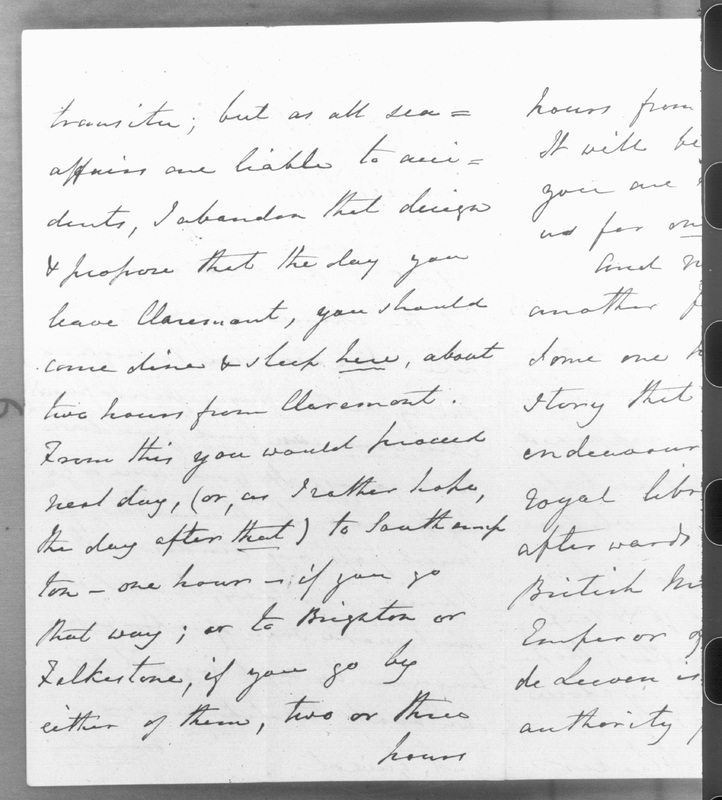 transitu; but as all sea=
affairs are liable to acci=
dents, I abandon that design
& propose that the day you
leave Claremont, you should
come dine & sleep here, about
two hours from Claremont.
From this you would proceed
next day, (or, as I rather hope,
the day after that) to Southamp
ton - one hour - if you go
that way; or to Brighton or
Folkestone, if you go by
either of them, two or three
hours
hours from
It will be
you are
us for
and
another
Some one
Story that
endeavour
royal libr
afterwards
British Mu
Emperor of
de Lieven is
authority